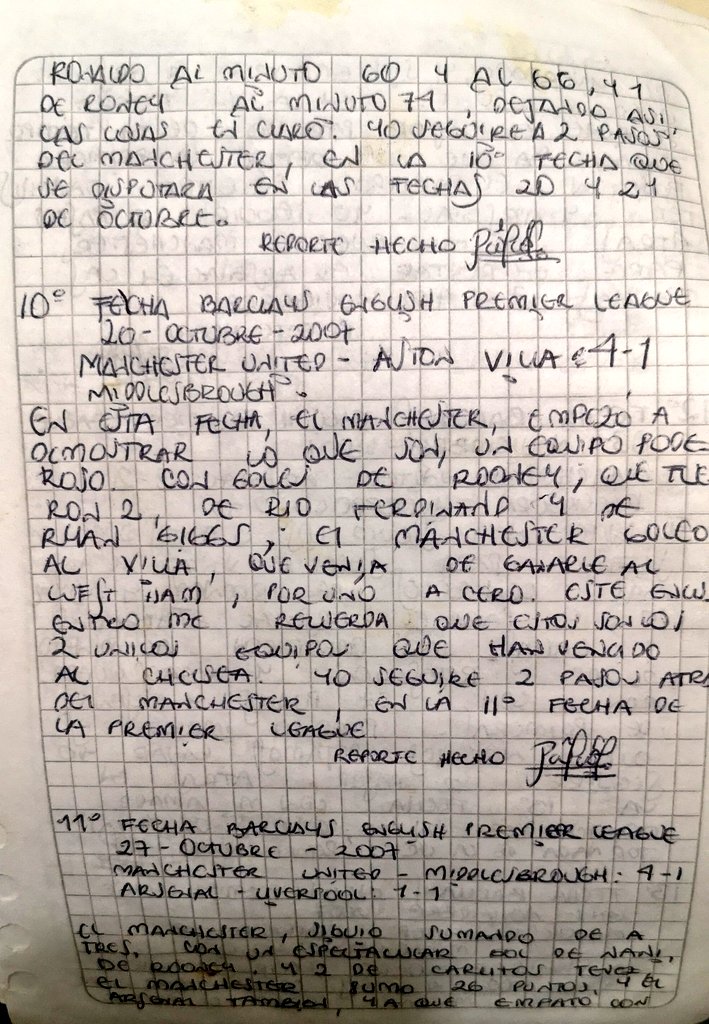 RONALDO AL MINUTO 60 Y AL 66, Y 1
DE RONEY AL MINUTO 71, DEJANDO ASI
LAS COSAS EN CLARO. YO SEGUIRE A 2 PASOS
DEL MANCHESTER, EN LA 10° FECHA QUE
SE DISPUTARA EN LAS FECHAS 20 Y 21
DE OCTUBRE.
REPORTE HECHO
10° FECHA BARCLAYS ENGLISH PREMIER LEAGUE
20-OCTUBRE-2007
MANCHESTER UNITED - ASTON VILLA 4-1
MIDDLESBROUGH.
EN ESTA FECHA, EL MANCHESTER, EMPEZO A
DEMOSTRAR LO QUE SON, UN EQUIPO PODE-
ROSO. CON GOLES DE ROONEY, QUE FUE
RON 2, DE RIO FERDINAND Y DE
RYAN GIGGS, El MANCHESTER GOLEO
AL VILLA, QUE VENIA DE GANARLE AL
WEST HAM, POR UNO A CERO. ESTE ENCU
ENTRO ME RECUERDA QUE ESTOS SON LOS
2 UNICOS EQUIPOS QUE HAN VENCIDO
AL CHELSEA. YO SEGUIRE 2 PASOS ATRA
DEL MANCHESTER, EN LA 11° FECHA DE
LA PREMIER LEAGUE
REPORTE HECHO
11° FECHA BARCLAYS ENGLISH PREMIER LEAGUE
27-OCTUBRE-2007
MANCHESTER UNITED - MIDDLESBROUGH: 4-1
ARSENAL - LIVERPOOL: 1-1
EL MANCHESTER, SIGUIO SUMANDO DE A
TRES. CON UN ESPECTACULAR GOL DE NANI,
DE ROONEY, Y 2 DE CARLITOS TEVEZ
EL MANCHESTER SUMO 26 PUNTOS, Y EL
ARSENAL TAMBIEN, YA QUE EMPATO CON